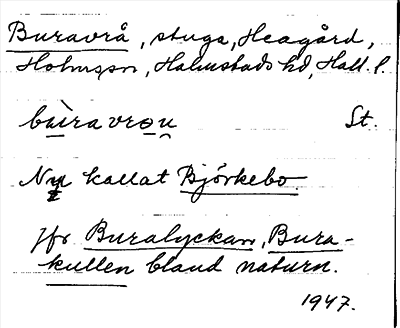 Buravrå, stuga, Heagård,
Holmssn, Halmstads hd, Hall. l.
bùravro̲u̯ St.
Nu kallat Björkebo.
Jfr Buralyckan, Bura-
kullen bland naturn.
1947.